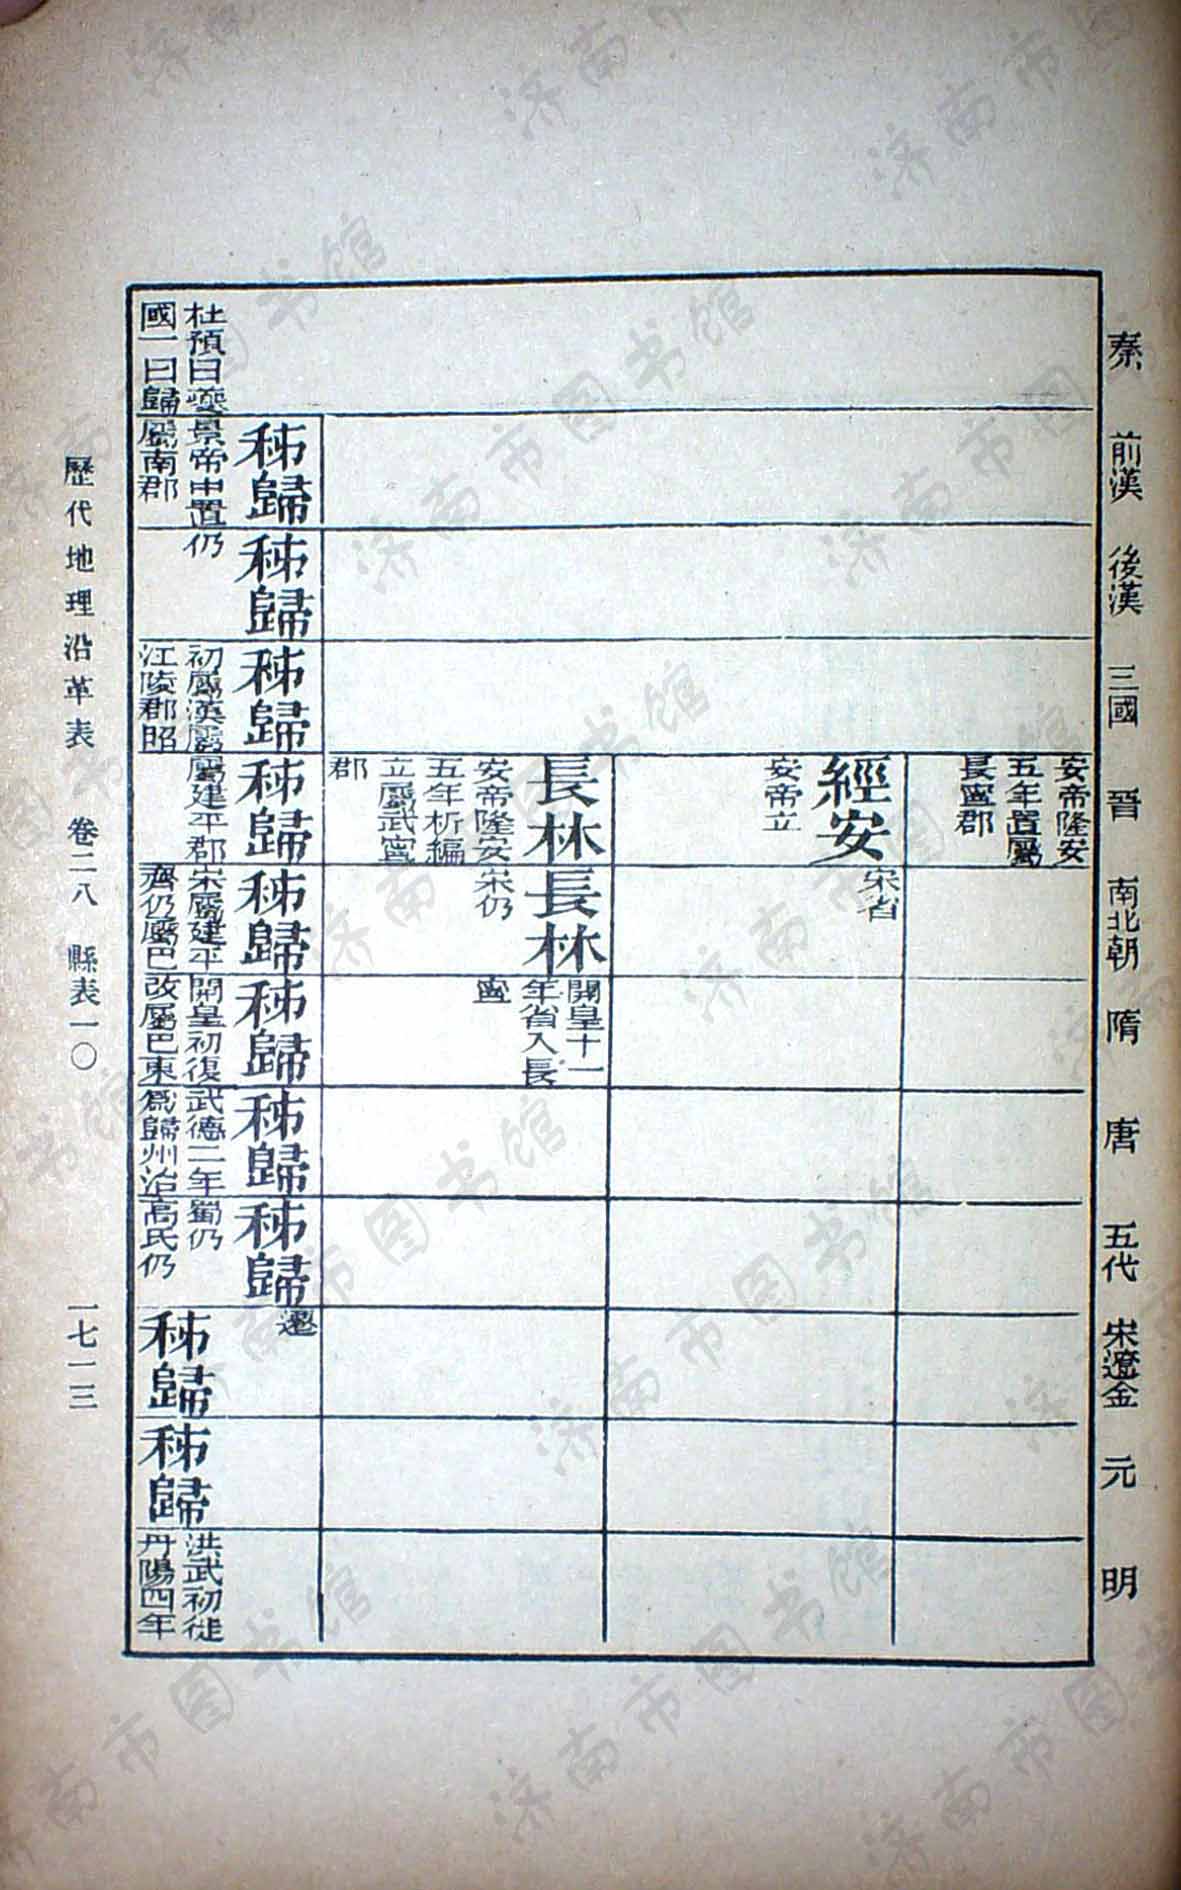 秦
前漢
後漢
三國
晉
南北朝
隋
唐
五代
宋遼金
元
明
安帝隆安
五年置屬
長寧郡
經安
安帝立
宋省
長林
安帝隆安
五年析編
立屬武寧
郡
長林
宋仍
開皇十一
年省入長
寧
秭歸
秭歸
秭歸
秭歸
秭歸
秭歸
秭歸
秭歸
遷
杜預曰夔
國一曰歸
景帝中置
屬南郡
仍
初屬漢屬
江陵郡昭
屬建平郡
宋屬建平
齊仍屬巴
開皇初復
改屬巴東
武德二年
為歸州治
蜀仍
高氏仍
秭歸
秭歸
洪武初徙
丹陽四年
歷代地理沿革表 卷二八 縣表一〇 一七一三
济南市图书馆